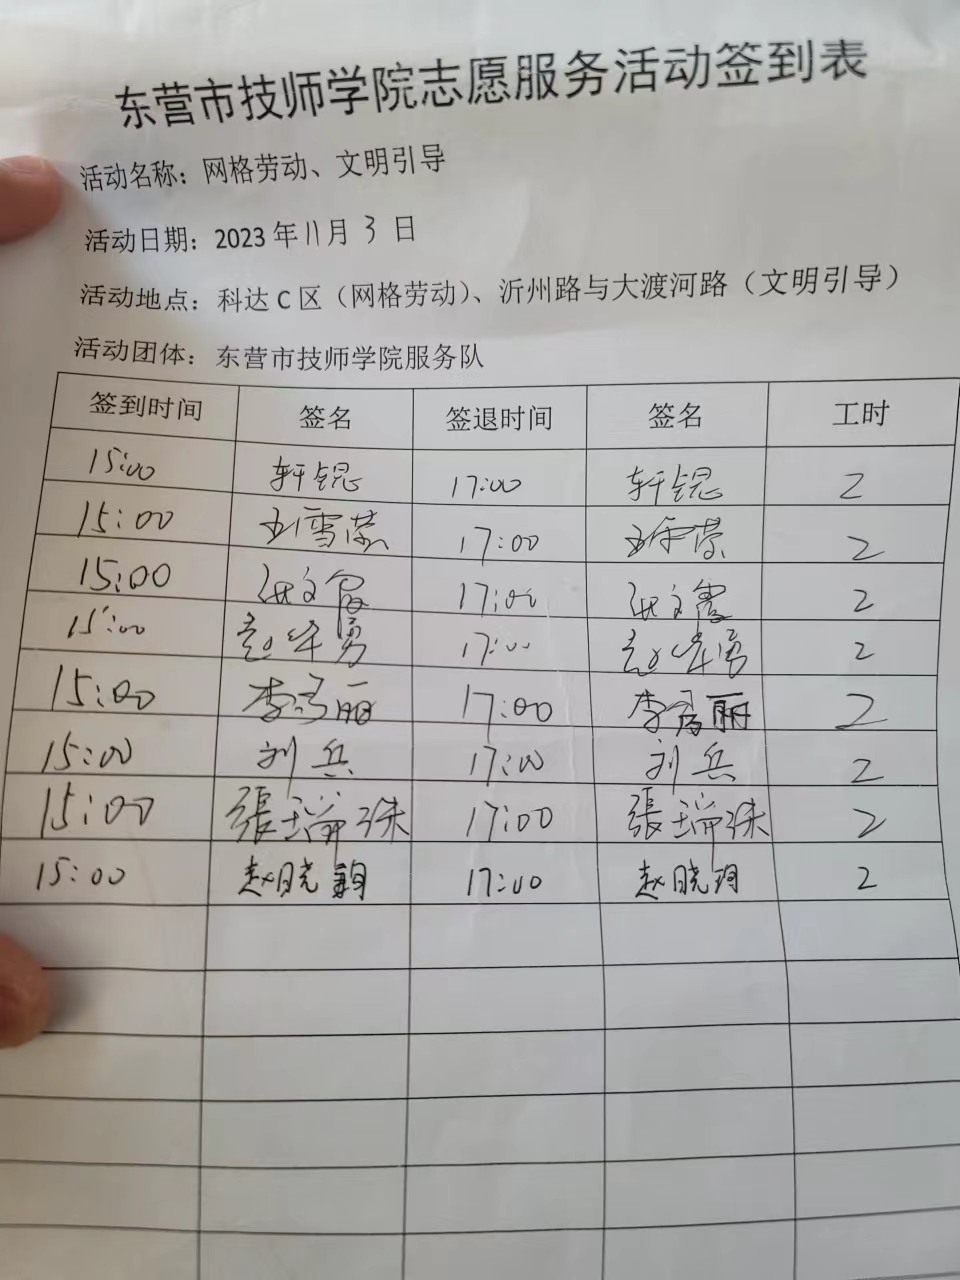 东营市技师学院志愿服务活动签到表
活动名称：网格劳动、文明引导
活动日期：2023年11月3日
活动地点：科达C区（网格劳动）、沂州路与大渡河路（文明引导）
活动团体：东营市技师学院服务队
签到时间 签名 签退时间 签名 工时
15:00 轩锟 17:00 轩锟 2
15:00 王雪荣 17:00 王雪荣 2
15:00 张文霞 17:00 张文霞 2
15:00 赵华勇 17:00 赵华勇 2
15:00 李秀丽 17:00 李秀丽 2
15:00 刘兵 17:00 刘兵 2
15:00 張瑞珠 17:00 張瑞珠 2
15:00 赵晓 17:00 赵晓 2